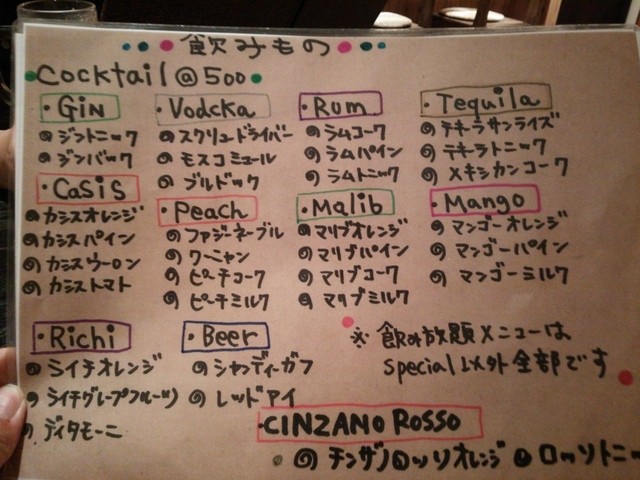 飲みもの
Cocktail@500
・GiN
ジントニック
ジンバック
・Vodcka
スクリュードライバー
モスコミュール
ブルドック
・Rum
ラムコーク
ラムパイン
ラムトニック
・Tequila
テキーラサンライズ
テキーラトニック
メキシカンコーク
・Casis
カシスオレンジ
カシスパイン
カシスウーロン
カシストマト
・Peach
ファジーネーブル
ワーニャン
ピーチコーク
ピーチミルク
・Malib
マリブオレンジ
マリブパイン
マリブコーク
マリブミルク
・Mango
マンゴーオレンジ
マンゴーパイン
マンゴーミルク
・Richi
ライチオレンジ
ライチグレープフルーツ
ディタモーニ
・Beer
シャンディーガフ
レッドアイ
※飲み放題メニューは
special以外全部です
・CINZANO ROSSO
チンザノロッソオレンジ ロッソトニー